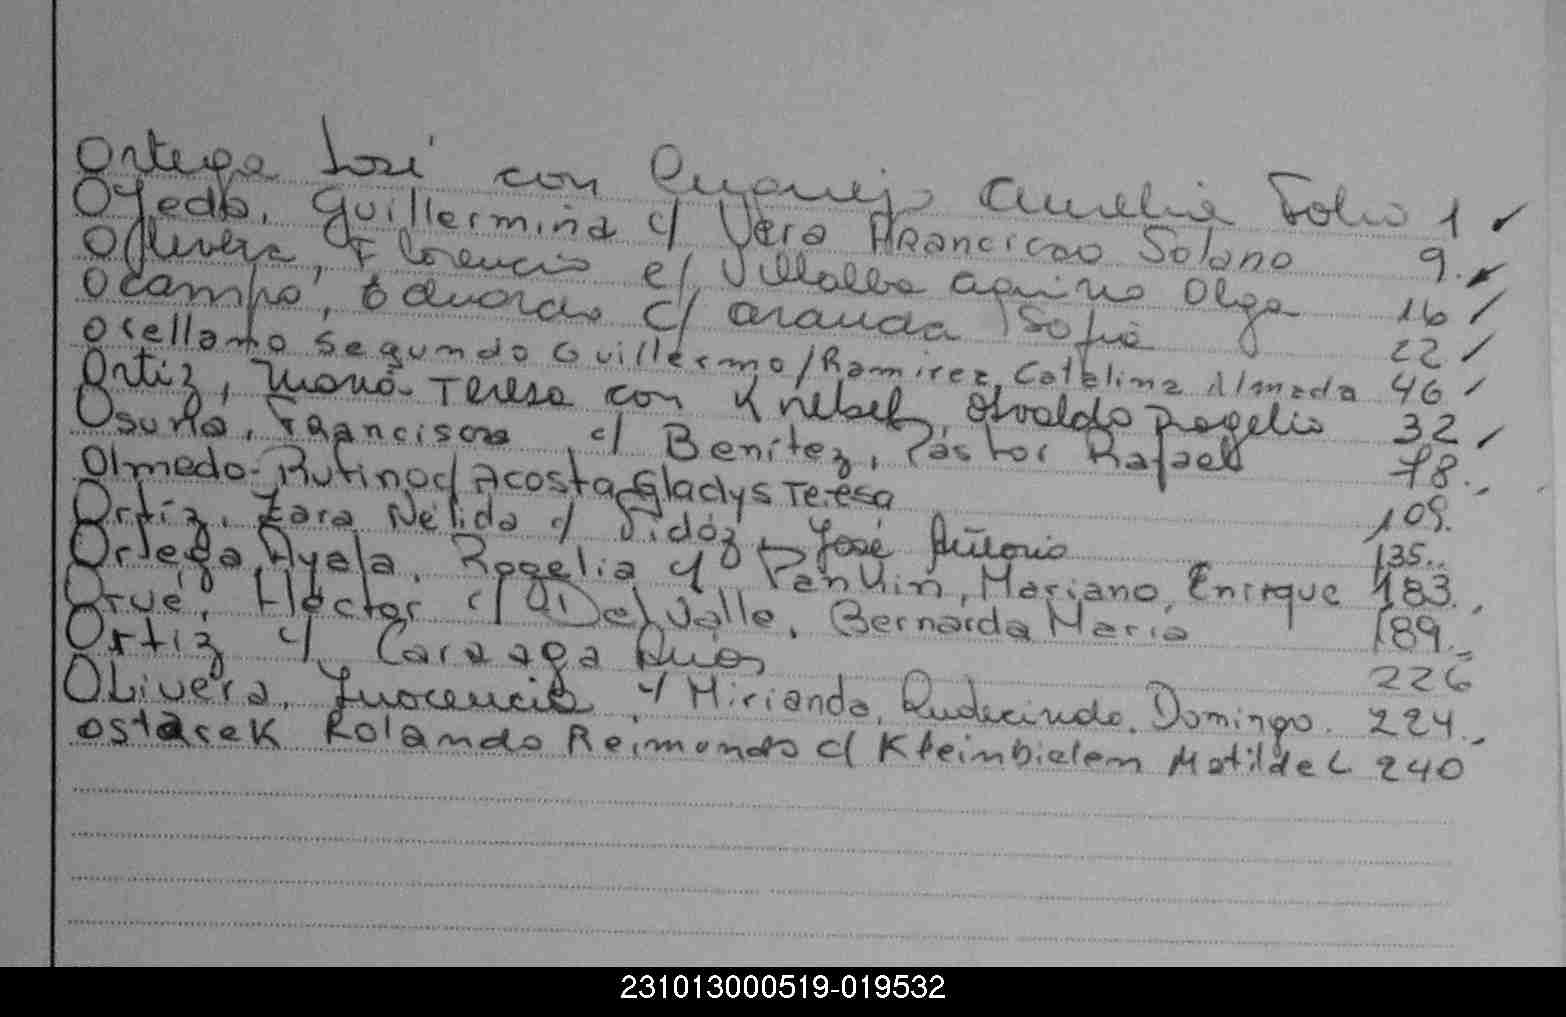 Ortega José con Aurelia Folio 1
Ojeda, Guillermina c/ Vera Francisco Solano 9.
Olivera, Florencio c/ Villalba Aquino Olga 16
Ocampo, Eduardo c/ Aranda Sofia 22
Orellano Segundo Guillermo/Ramirez, Catalina Almada 46
Ortiz, María Teresa con Knebel, Osvaldo Rogelio 32
Osuna, Francisca c/ Benitez, Pastor Rafael 78.
Olmedo Rufino c/ Acosta Gladys Teresa 109.
Ortiz, Zara Nélida c/ Vidóz, José Antonio 135..
Ortega Ayala, Rogelia c/ Mariano, Enrique 183.
Orué, Héctor c/ Del Valle, Bernarda Maria 189.
Ortiz c/ 226
Olivera, Inocencia c/ Mirianda, Rudecindo Domingo. 224.
Ostasek Rolando Reimondo c/ Kleinbielen Matilde L 240
231013000519-019532